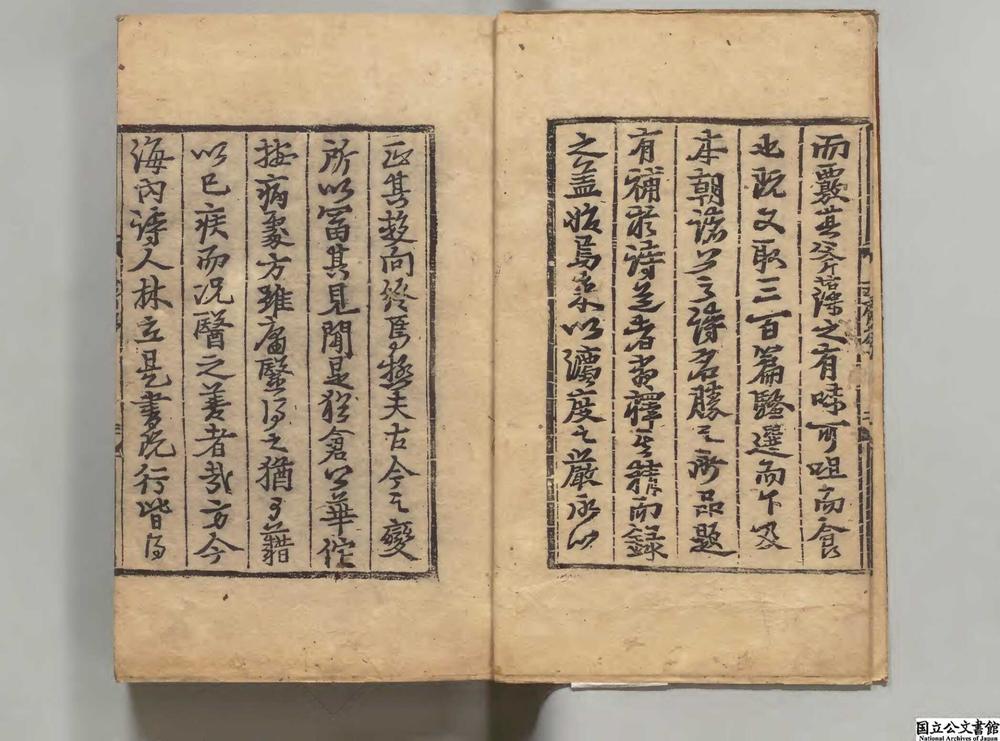 而覈其斧藻之有味可咀而食
也既又取三百篇騷選而下及
本朝諸公之詩名勝之所品題
有補於詩道者盡擇其精而録
之盖始焉束以灋度之嚴所以
正其趍向終焉極夫古今之變
所以富其見聞是猶倉公華佗
按病處方雖庸醫得之猶可藉
以已疾而況醫之善者哉方今
海內詩人林立是書既行皆得
国立公文書館
National Archives of Japan